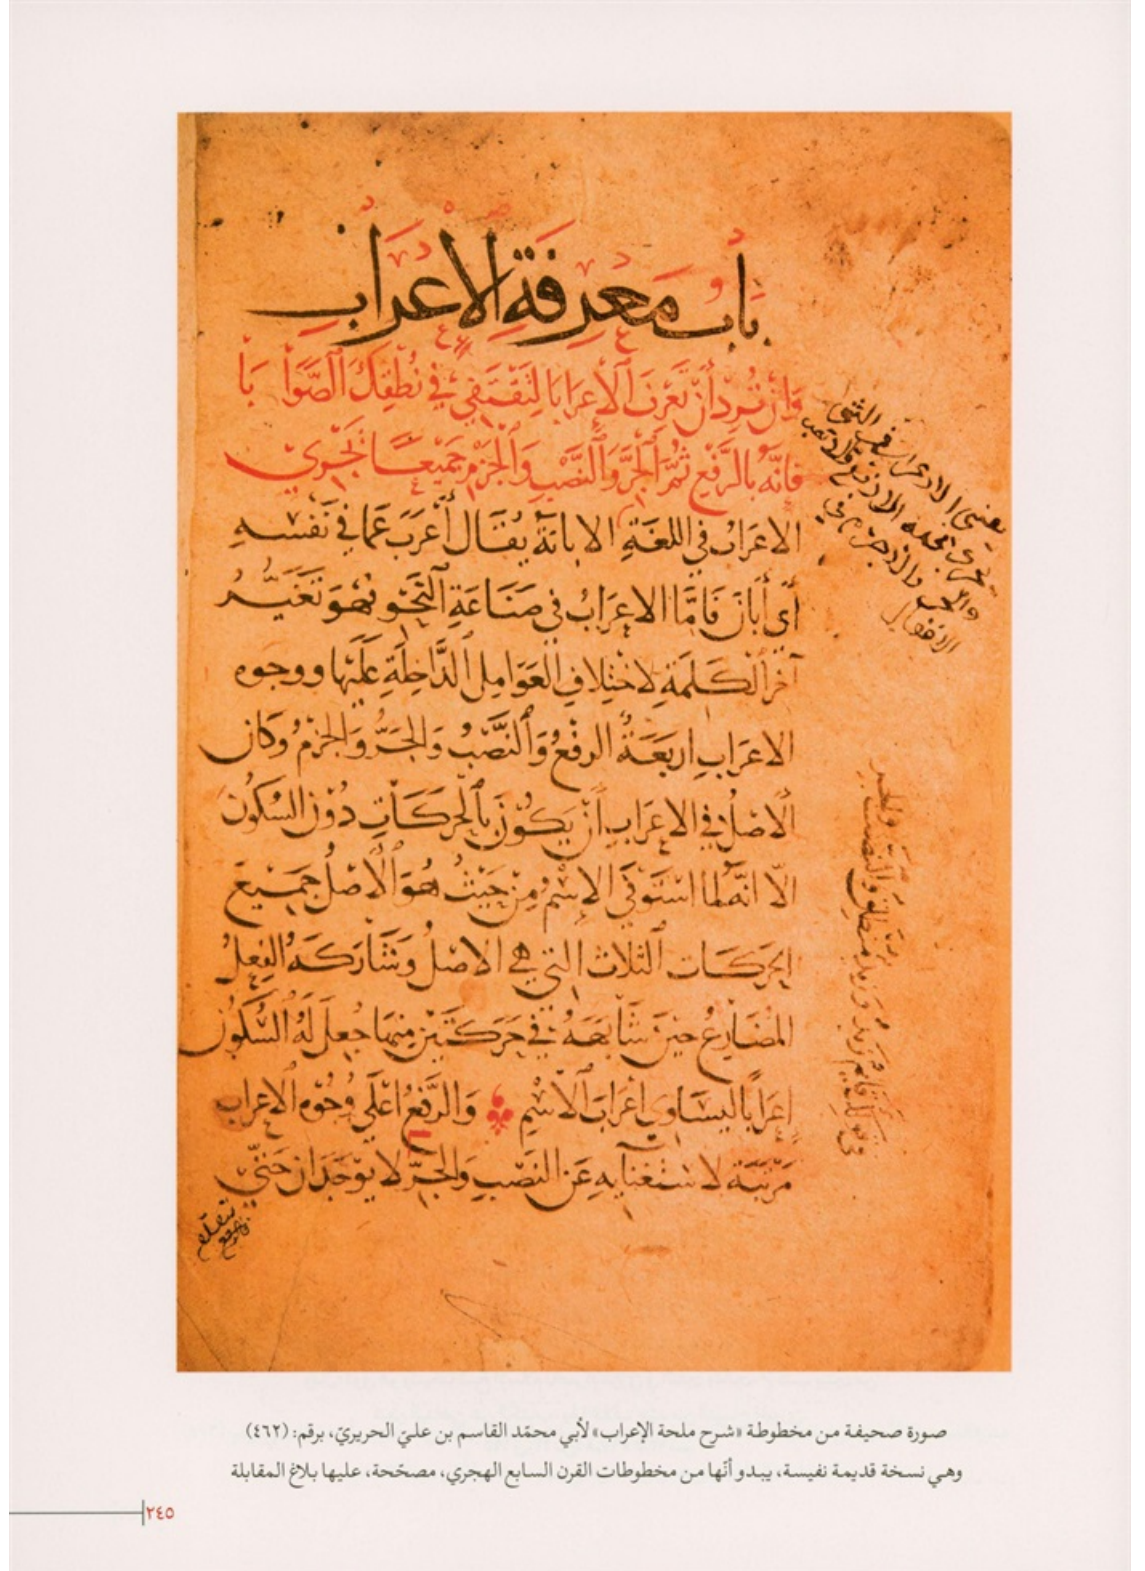 بَابُ مَعْرِفَةِ الْإِعْرَابِ
وَإِنْ تُرِدْ أَنْ تَعْرِفَ الْإِعْرَابَا لِتَقْتَفِي فِي نُطْقِكَ الصَّوَابَا
فَإِنَّهُ بِالرَّفْعِ ثُمَّ الْجَرِّ وَالنَّصْبِ وَالْجَزْمِ جَمِيْعًا يَجْرِيْ
الاعْرَابُ في اللغَةِ الابانَةُ يُقَال أَعْرَبَ عَمَّا في نَفْسِهِ
أَي أَبَانَ فَامَّا الاعرَابُ في صَنَاعَةِ النَّحْوِ فهُوَ تَغَيُّرُ
آخر الكَلمَةِ لاختِلافِ العَوَامِلِ الدَّاخِلَةِ عَلَيْهَا ووجوه
الاعرَابِ اربَعَةٌ الرفعُ وَالنَّصْبُ وَالجَرُّ وَالجزْمُ وكَان
الاصْلُ في الاعرَابِ أنْ يَكُوْنَ بِالحَرَكَاتِ دُوْن السُكُونِ
الّا انّه لما استَوفَى الاسْمُ مِنْ حَيْثُ هُوَ الْأَصْلُ جَمِيعَ
الحَرَكَات الثلاث التي هي الاصْلُ وشَارَكَهُ الفِعلُ
المُضَارِعُ حينَ شَابَهَهُ في حَرَكَتَيْن مِنهَا جُعِلَ لَهُ السُّكُوْن
اعرَابًا ليسَاوي اعْرَابَ الْاسْمِ وَالرَّفْعُ اعْلَى وُجُوْهِ الاعراب
مَرْتَبَة لاستغنَائِهِ عَن النَصْبِ وَالجَرّ لا يوْجَدَان حَتّى
صورة صحيفة من مخطوطة «شرح ملحة الإعراب» لأبي محمّد القاسم بن عليّ الحريريّ، برقم: (٤٦٢)
وهي نسخة قديمة نفيسة، يبدو أنّها من مخطوطات القرن السابع الهجري، مصحّحة، عليها بلاغ المقابلة
٢٤٥